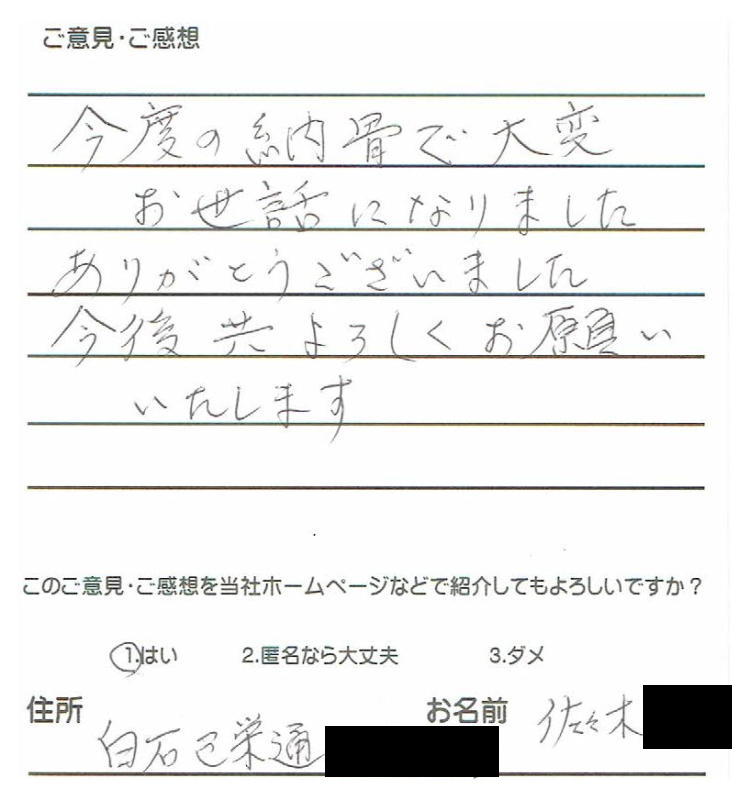 ご意見・ご感想
今度の納骨で大変
お世話になりました
ありがとうございました
今後共よろしくお願い
いたします
このご意見・ご感想を当社ホームページなどで紹介してもよろしいですか？
1.はい 2.匿名なら大丈夫 3.ダメ
住所 白石区栄通 お名前 佐々木